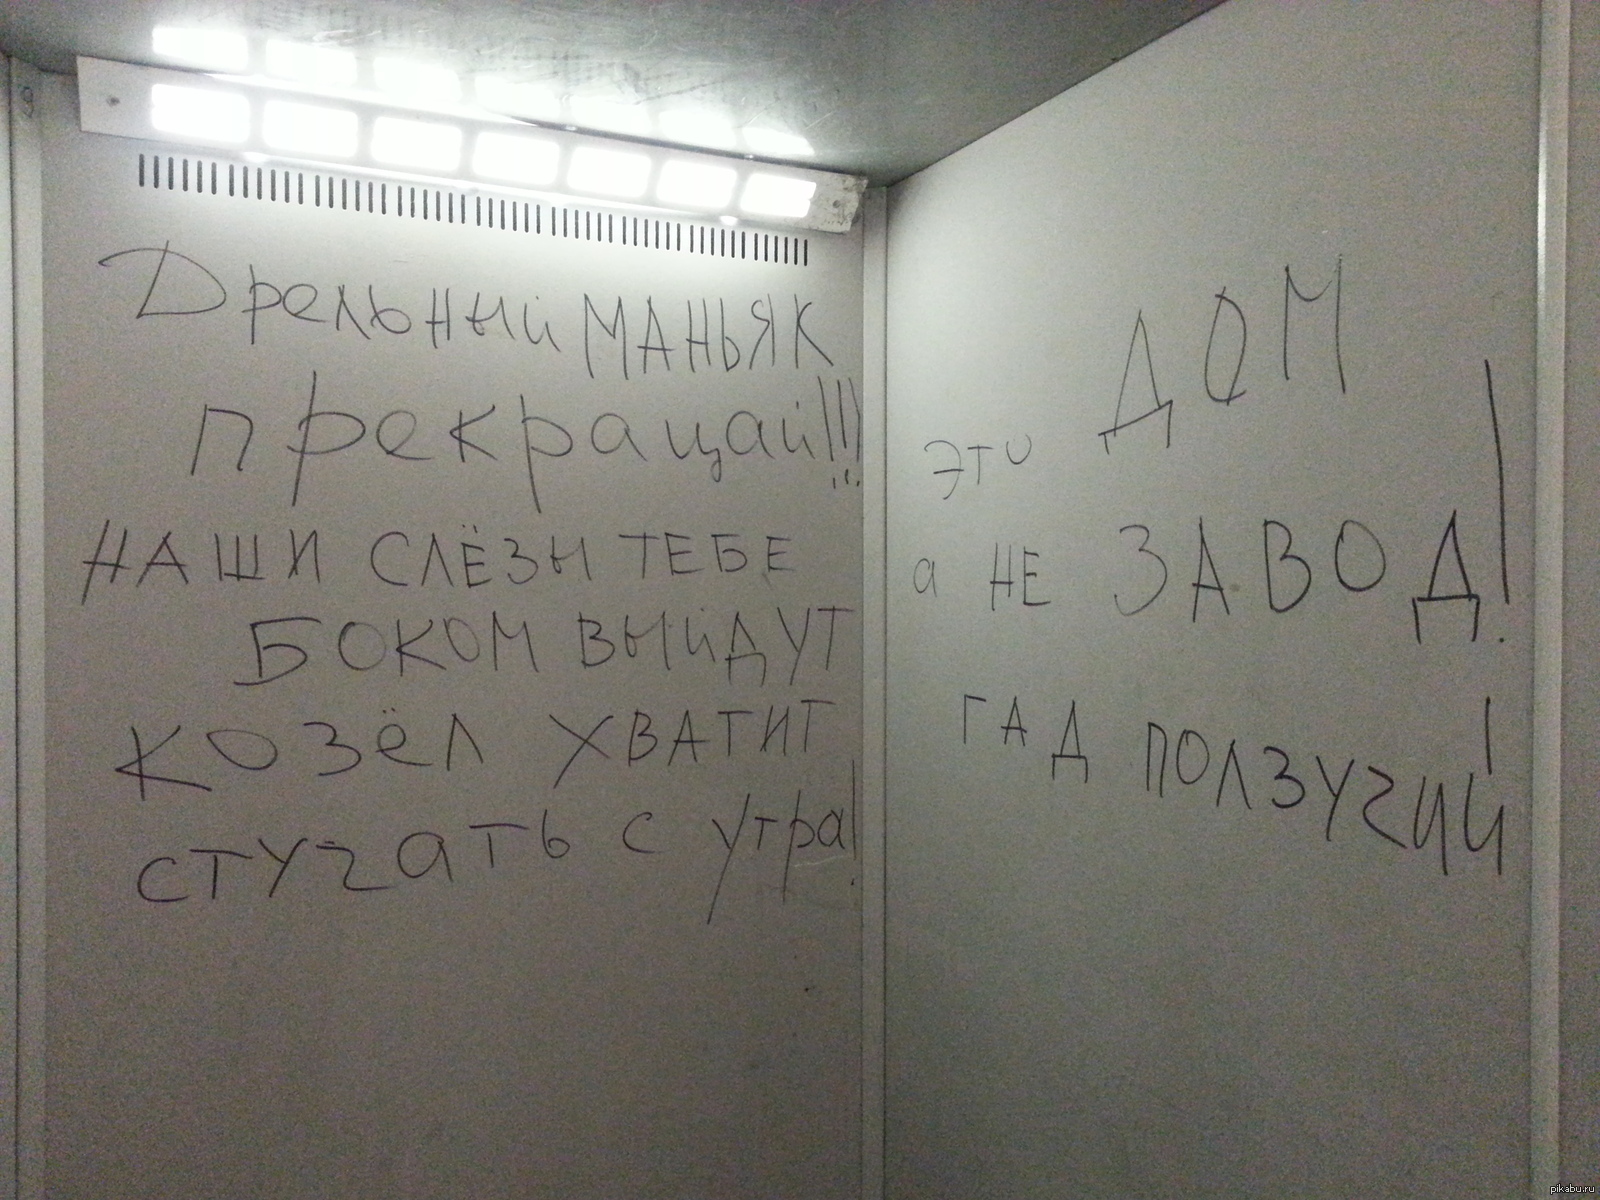 Дрельный МАНЬЯК
прекращай!!!
НАШИ СЛЁЗЫ ТЕБЕ
БОКОМ ВЫЙДУТ
козёл ХВАТИТ
стучать с утра!
это ДОМ
а НЕ ЗАВОД!
ГАД ПОЛЗУЧИЙ!
pikabu.ru